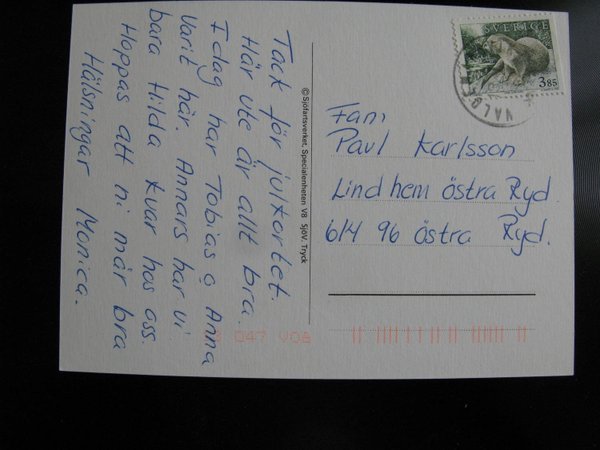 Tack för julkortet.
Här ute är allt bra.
I dag har Tobias o Anna
varit här. Annars har vi
bara Hilda kvar hos oss.
Hoppas att ni mår bra
Hälsningar Monica.
© Sjöfartsverket, Specialenheten V8 SjöV. Tryck
SVERIGE
3.85
Fam
Paul Karlsson
Lindhem östra Ryd
614 96 östra Ryd.
047 908